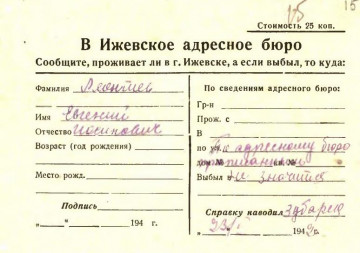 15
Стоимость 25 коп.
В Ижевское адресное бюро
Сообщите, проживает ли в г. Ижевске, а если выбыл, то куда:
Фамилия Леонтиев
Имя Евгений
Отчество Иосипович
Возраст (год рождения)
Место рожд.
Подпись
„ " 194 г.
По сведениям адресного бюро:
Гр-н
Прож. с
В
по ул. адресному бюро
дом прописанным кв. №
Выбыл в не значится
Справку наводил
„23/ " 1942 г.